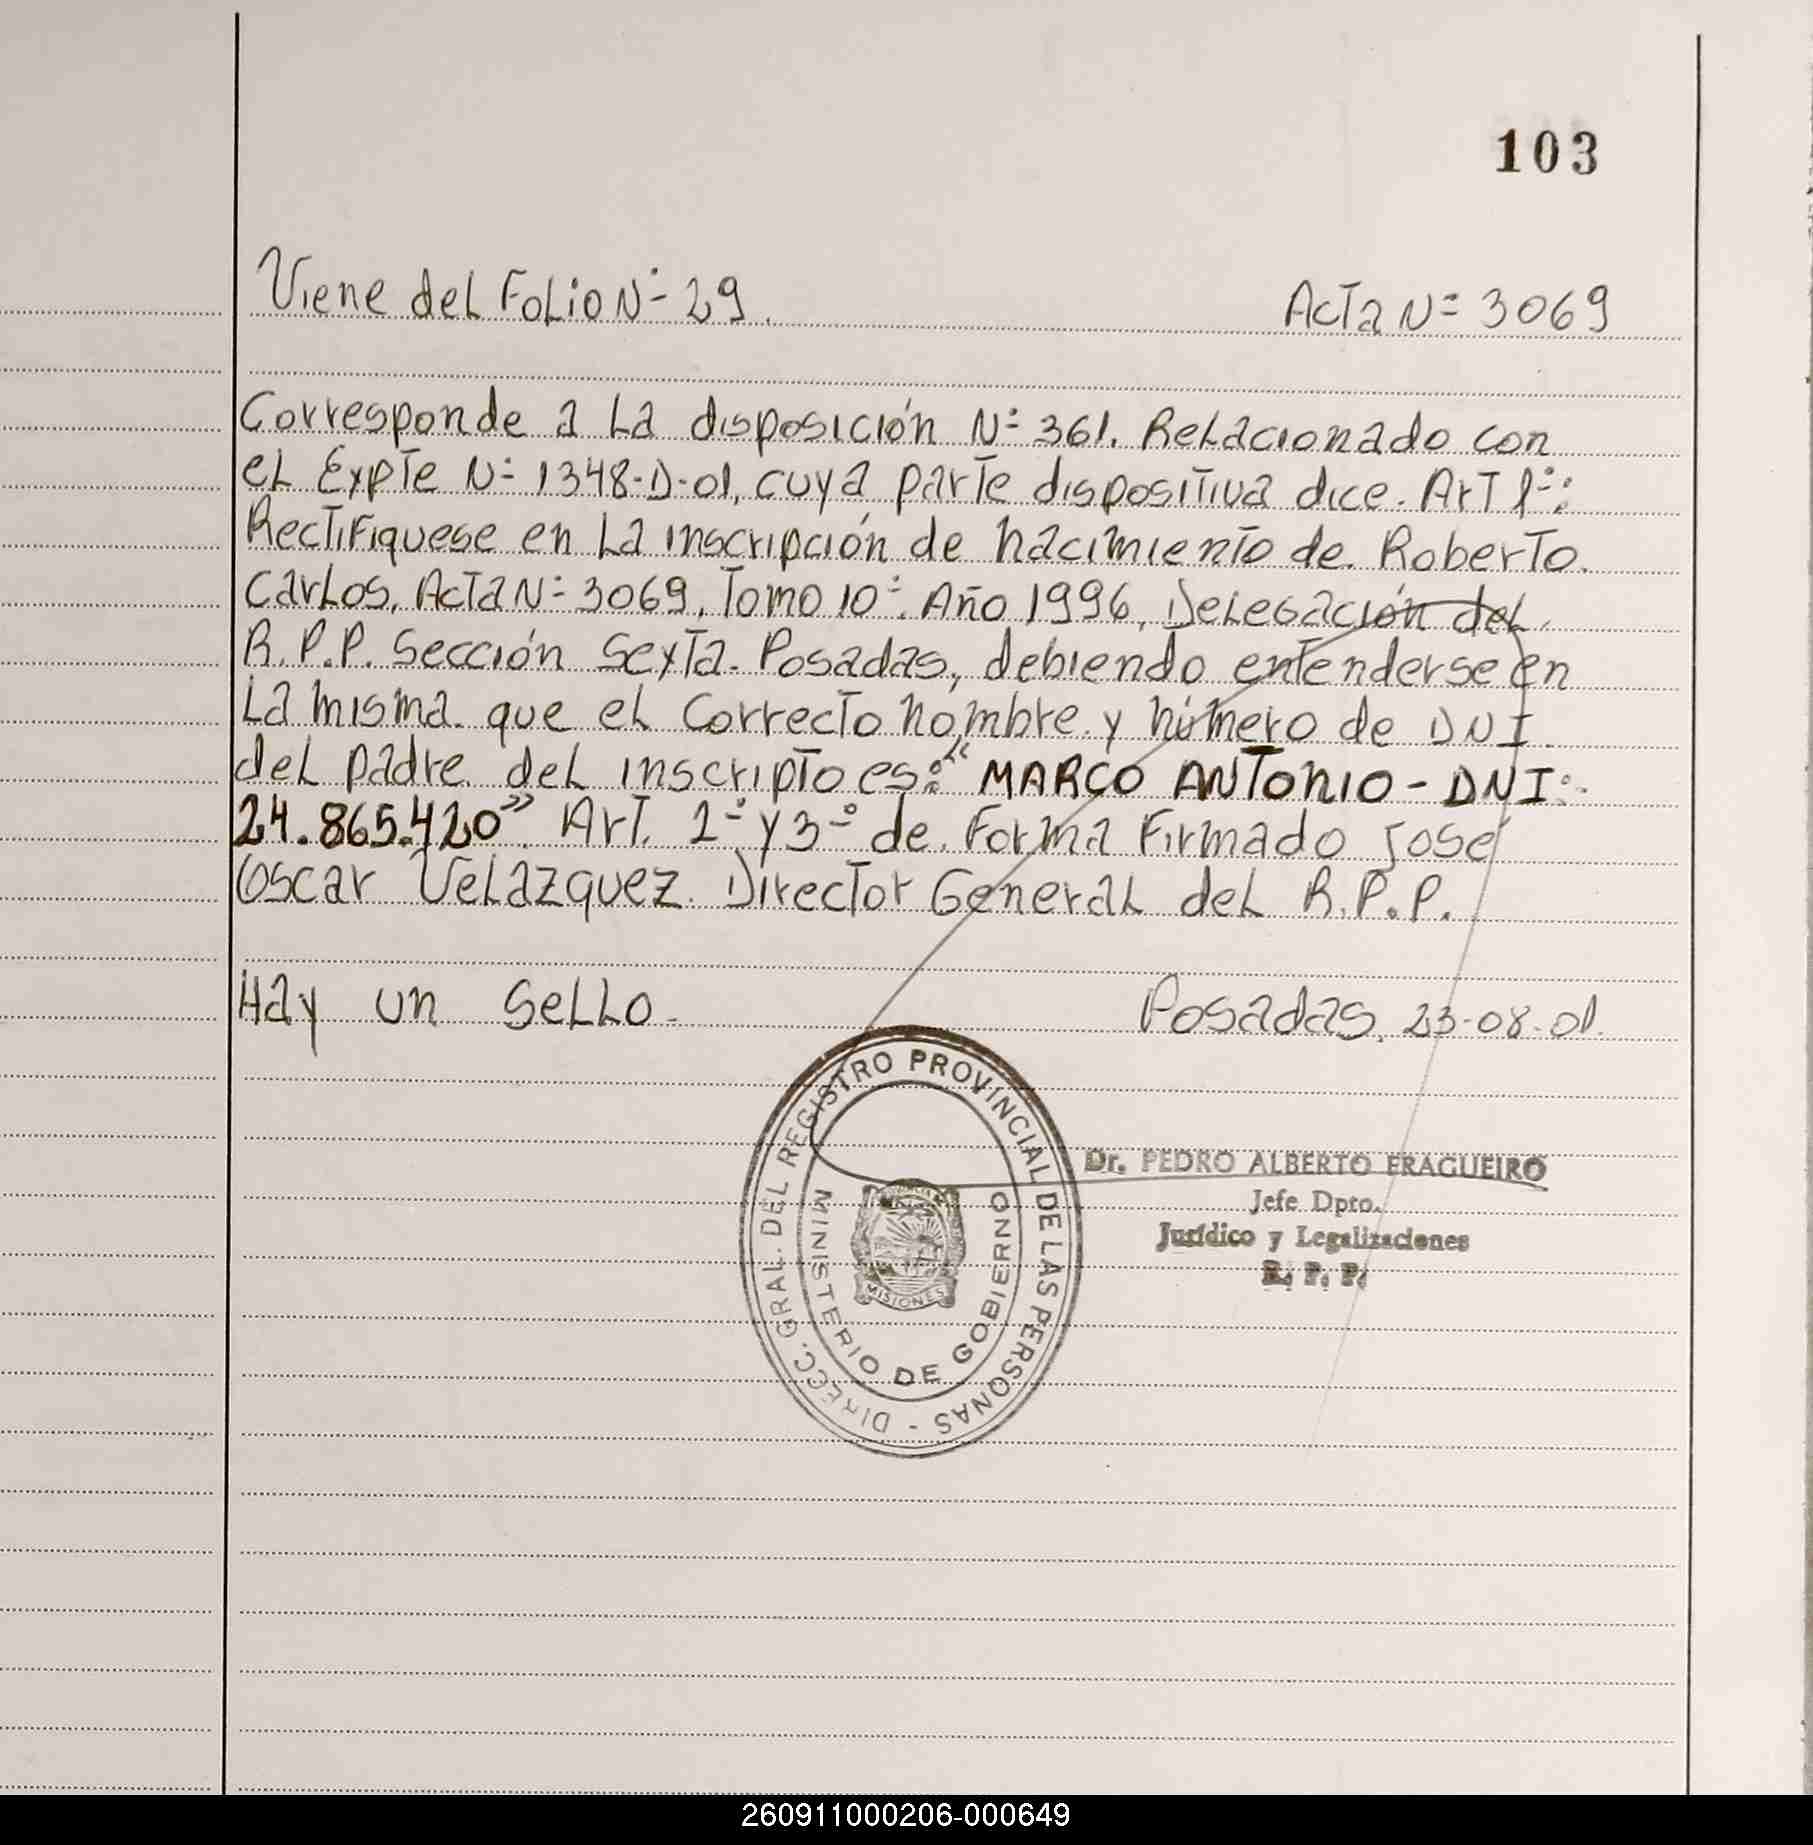 103
Viene del Folio Nº 29. Acta Nº 3069
Corresponde a la disposición Nº 361. Relacionado con
el Expte Nº 1348-D-01, cuya parte dispositiva dice. Art 1º:
Rectifiquese en la inscripción de nacimiento de Roberto.
Carlos, Acta Nº 3069, Tomo 10º. Año 1996, Delegación del
R.P.P. Sección Sexta. Posadas, debiendo entenderse en
la misma que el correcto nombre y número de DNI
del padre del inscripto es: "MARCO ANTONIO - DNI:
24.865.420". Art. 2º y 3º de forma Firmado José
Oscar Velazquez. Director General del R.P.P.
Hay un Sello. Posadas, 23-08-01.
DIRECC. GRAL. DEL REGISTRO PROVINCIAL DE LAS PERSONAS -
MINISTERIO DE GOBIERNO
MISIONES
Dr. PEDRO ALBERTO FRAGUEIRO
Jefe Dpto.
Jurídico y Legalizaciones
R. P. P.
260911000206-000649